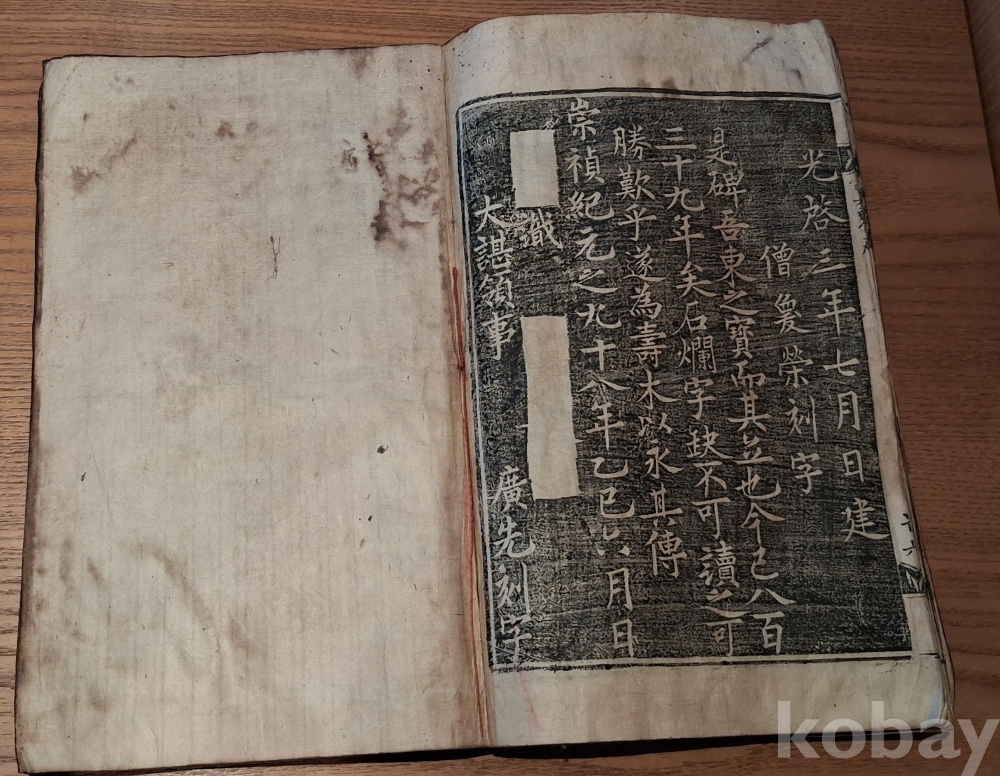 光啓三年七月日建
僧奐榮刻字
是碑吾東之寶而其並也今已八百
三十九年矣石爛字缺不可讀之可
勝歎乎遂為壽木以永其傳
崇禎紀元之九十八年乙巳六月日
識
大諶領事
廣先刻字
二十六
kobay